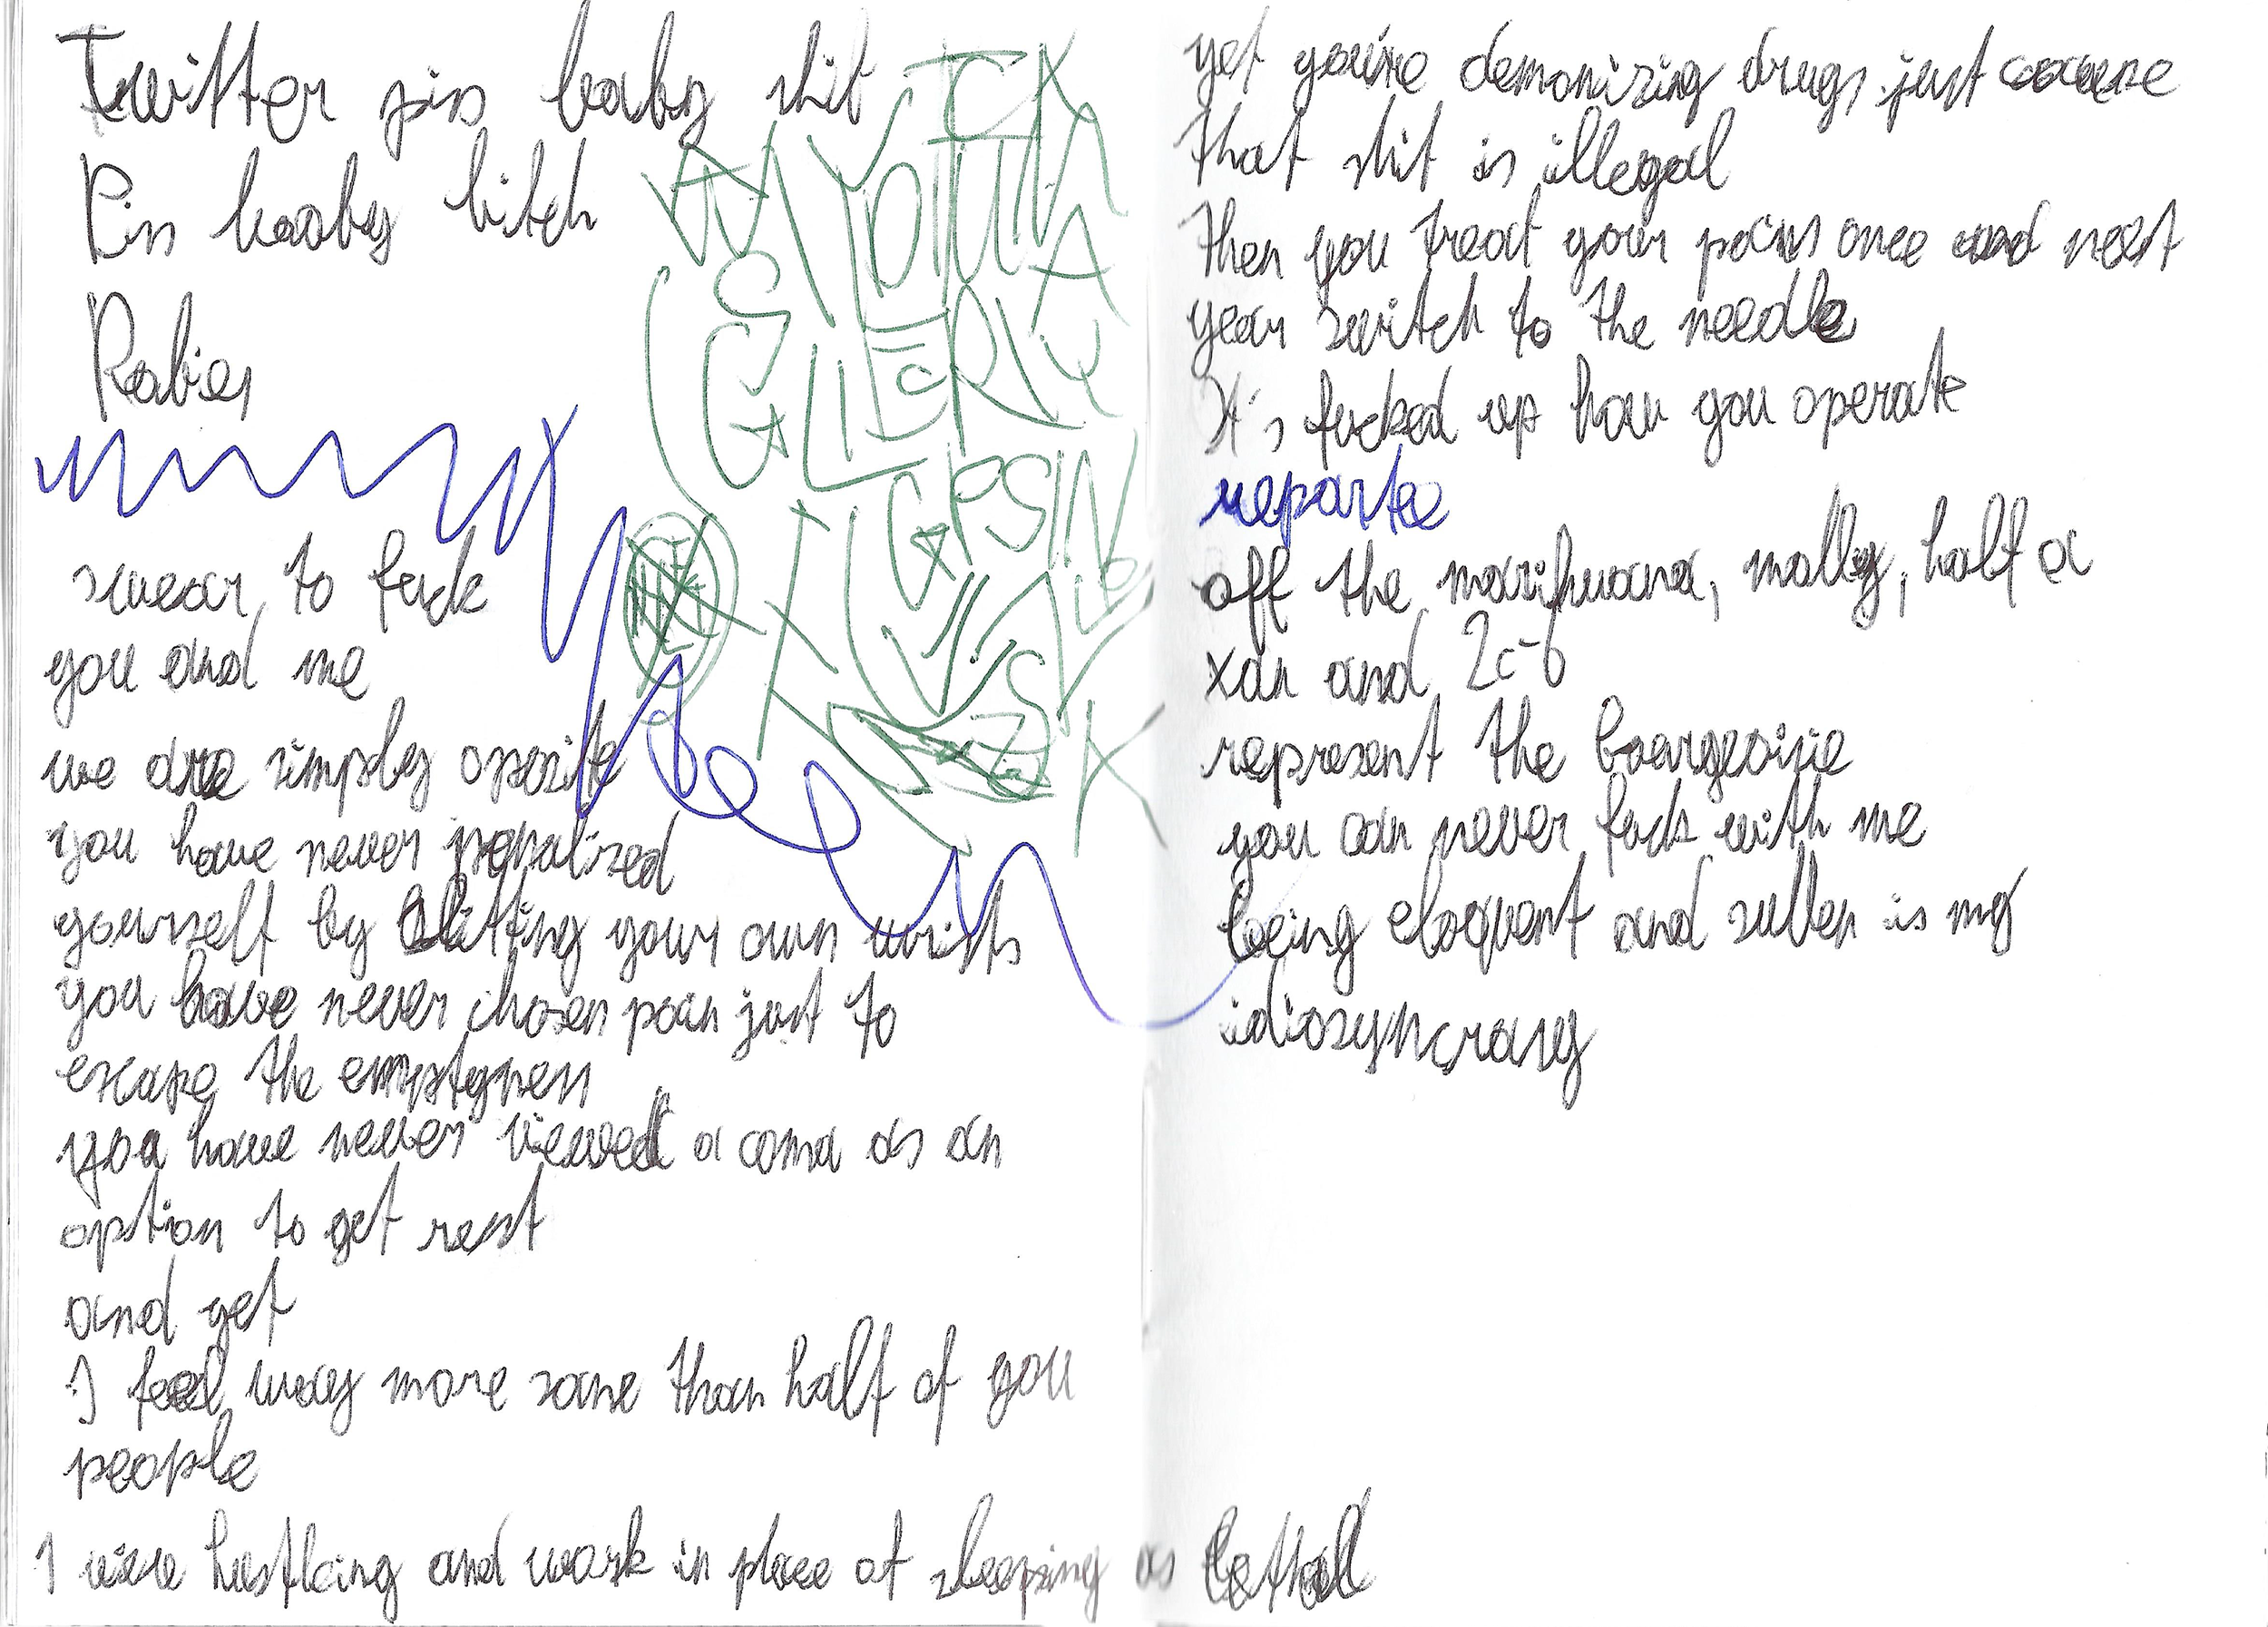 Twitter pin baby shit
Pin baby bitch
Rabies
swear to fuck
you and me
we are simply oposite
you have never penalized
yourself by slitting your own wrists
you have never chosen pain just to
escape the emptyness
you have never viewed a coma as an
option to get rest
and yet
I feel way more sane than half of you
people
I view hustling and work in place of sleeping as lethal
yet you're demonizing drugs just cause
that shit is illegal
then you treat your pain once and next
year switch to the needle
It's fucked up how you operate
off the marihuana, molly, half a
xan and 2c-b
represent the bourgeoisie
you can never fuck with me
being eloquent and sullen is my
idiosyncrasy